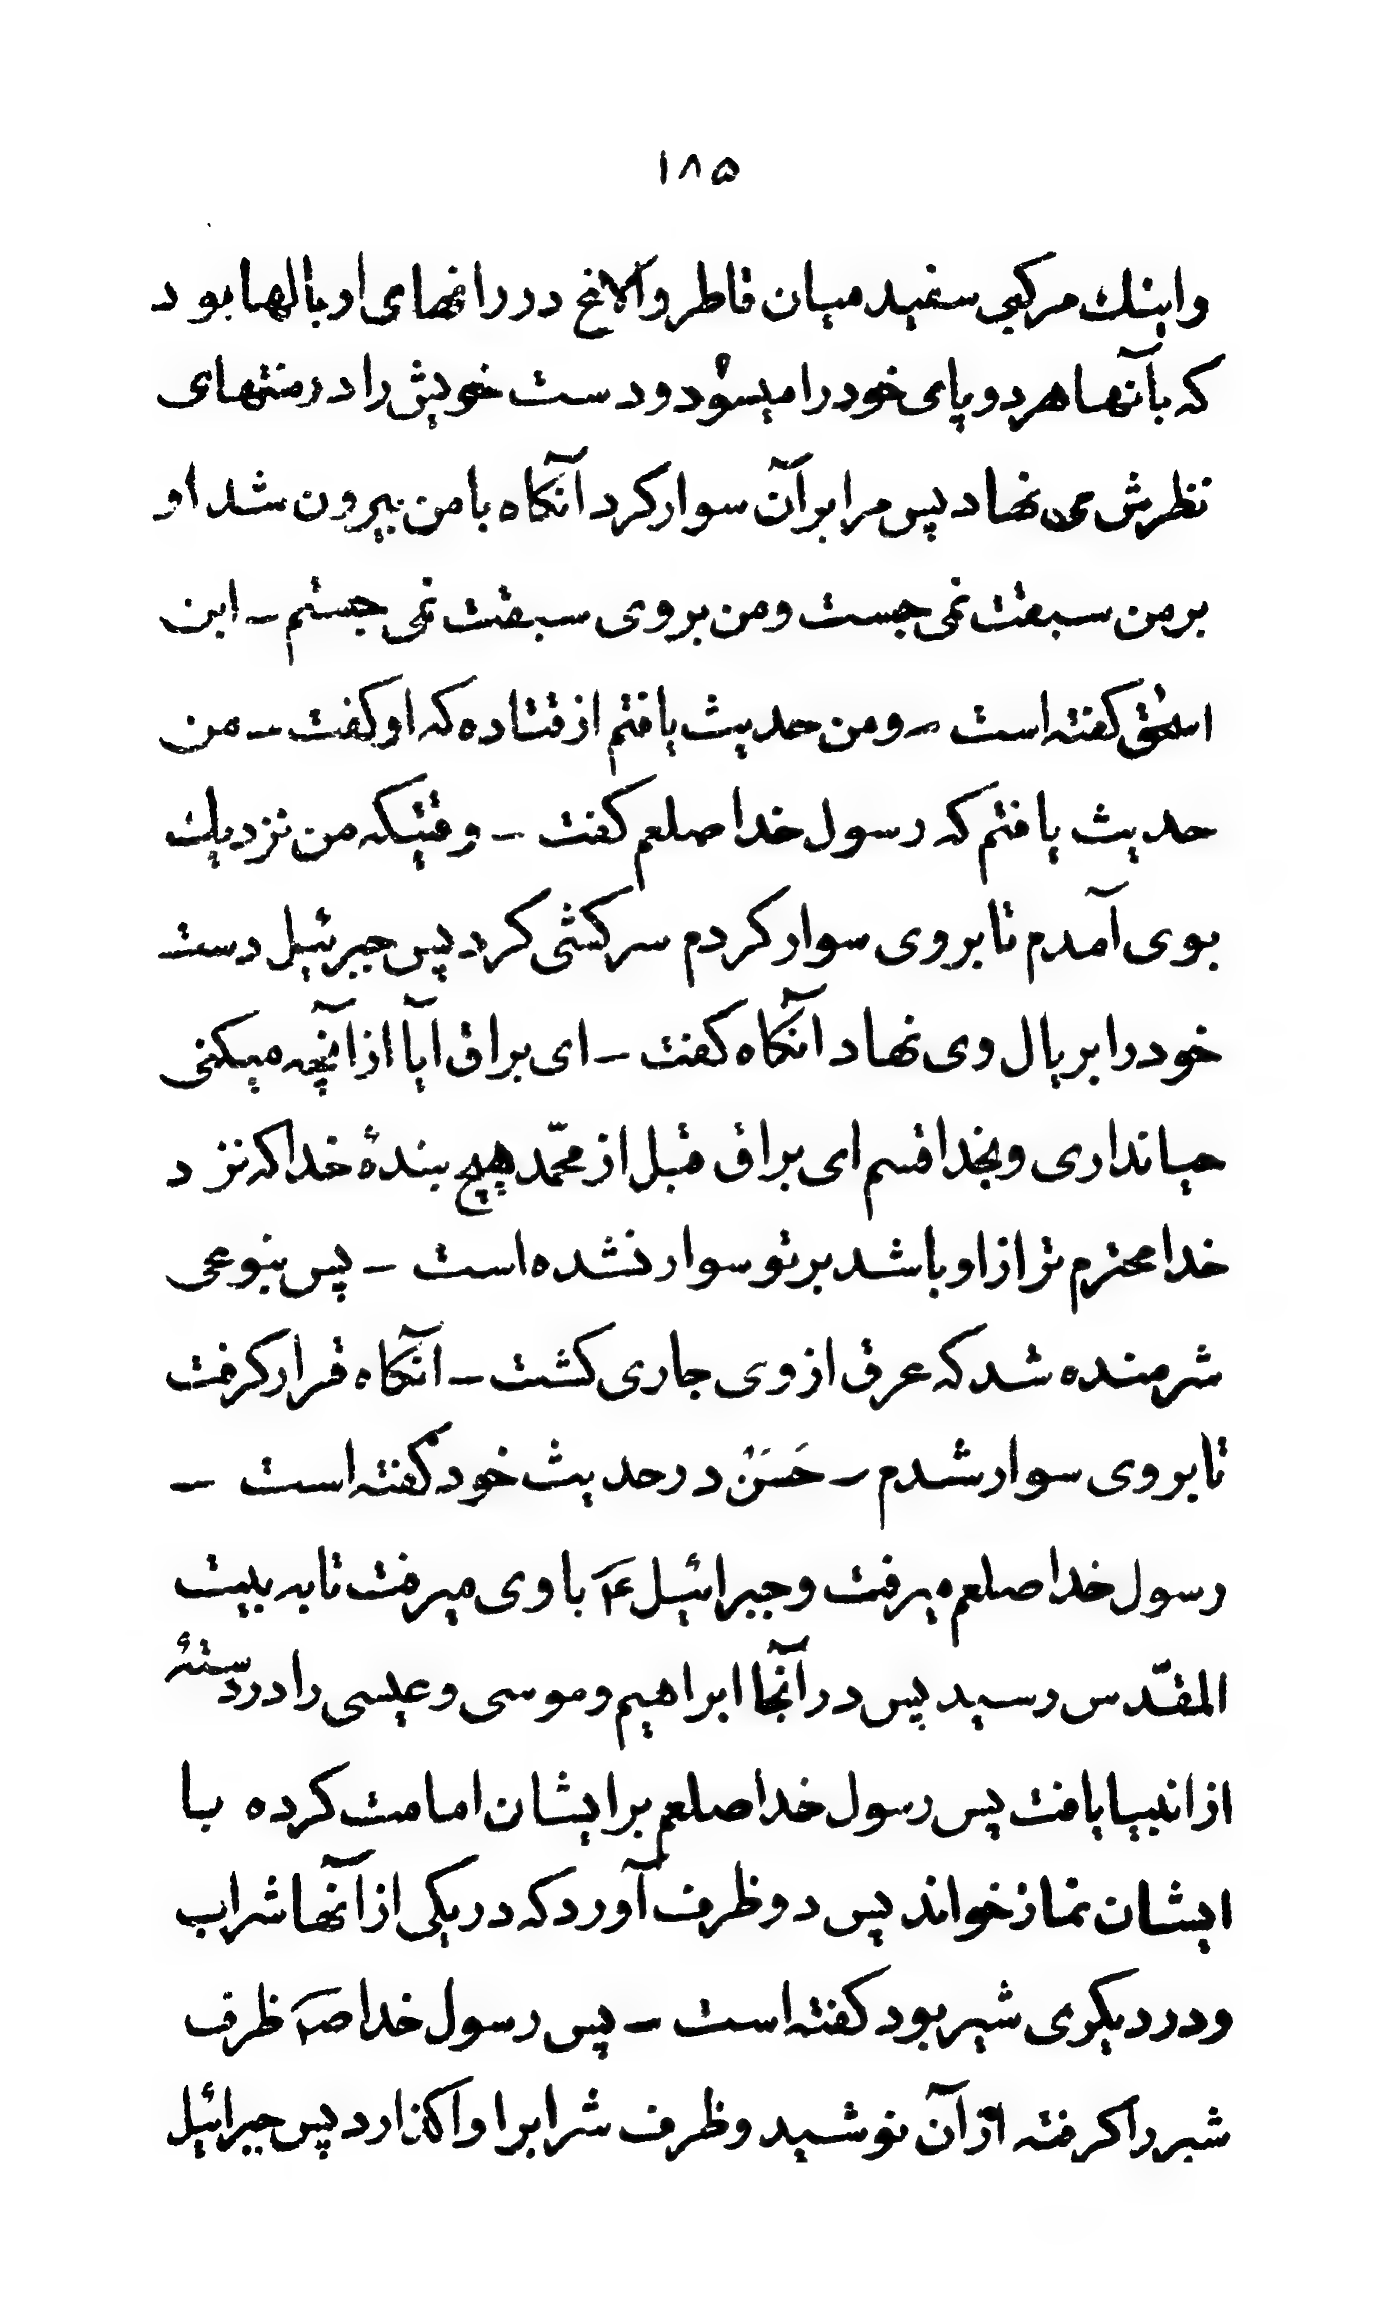 ۱۸۵
واینك مرکبی سفید میان قاطر والاغ در رانهای او بالها بود
که بآنها هر دو پای خود را میسود و دست خویش را در منتهای
نظرش می نهاد پس مرا بر آن سوار کرد آنکاه با من بیرون شد او
بر من سبقت نمی جست و من بر وی سبقت نمی جستم – ابن
اسحٰق کفته است – و من حدیث یافتم از قتاده که او کفت – من
حدیث یافتم که رسول خدا صلعم کفت – وقتیکه من نزدیك
بوی آمدم تا بر وی سوار کردم سرکشی کرد پس جبرئیل دست
خود را بر یال وی نهاد آنکاه کفت – ای براق آیا از آنچه میکنی
حیا نداری و بخدا قسم ای براق قبل از محمّد هیچ بندهٔ خدا که نزد
خدا محترم تر از او باشد بر تو سوار نشده است – پس بنوعی
شرمنده شد که عرق از وی جاری کشت – آنکاه قرار کرفت
تا بر وی سوار شدم – حَسَنْ در حدیث خود کفته است –
رسول خدا صلعم میرفت و جبرائیل ع با وی میرفت تا به بیت
المقدّس رسید پس در آنجا ابراهیم و موسی و عیسی را در دستهٔ
از انبیا یافت پس رسول خدا صلعم بر ایشان امامت کرده با
ایشان نماز خواند پس دو ظرف آورد که در یکی از آنها شراب
و در دیکری شیر بود کفته است – پس رسول خدا صم ظرف
شیر را کرفته از آن نوشید و ظرف شراب را واکذارد پس جبرائیل